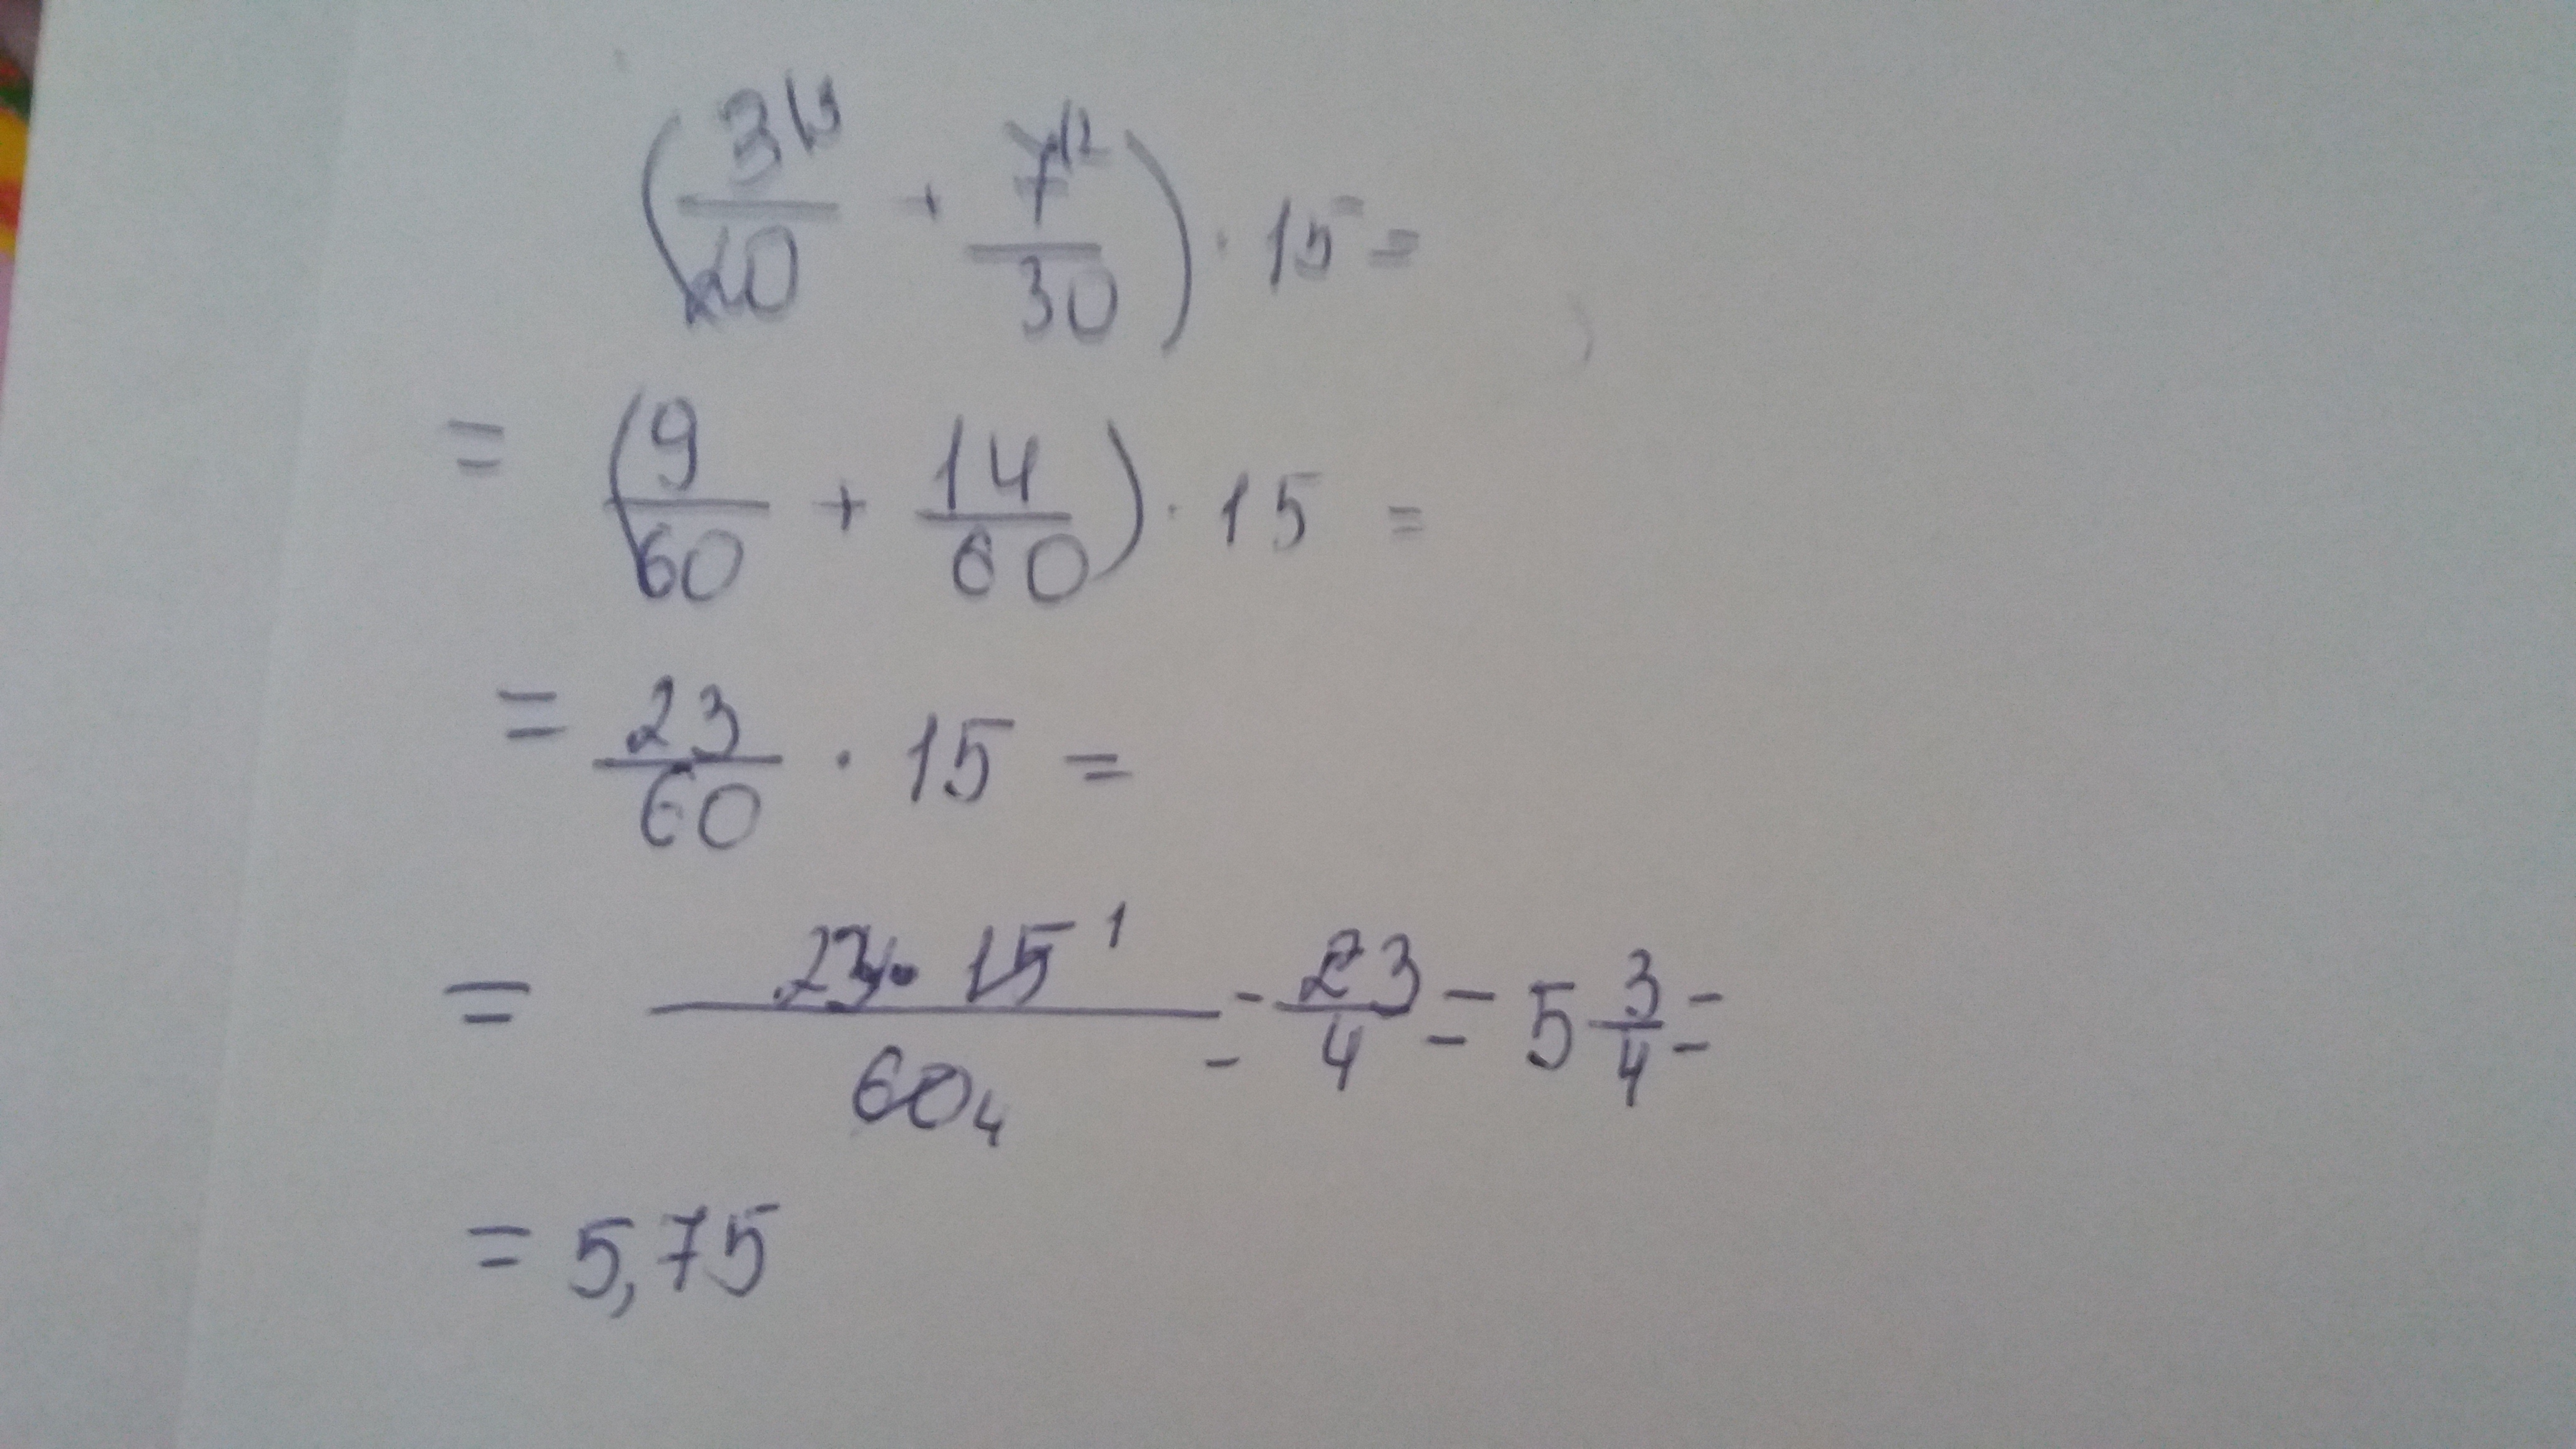 (3\3/20 + 7\2/30) · 15 =
= (9/60 + 14/60) · 15 =
= 23/60 · 15 =
= 23 · 15 1/60 4 = 23/4 = 5 3/4 =
= 5,75